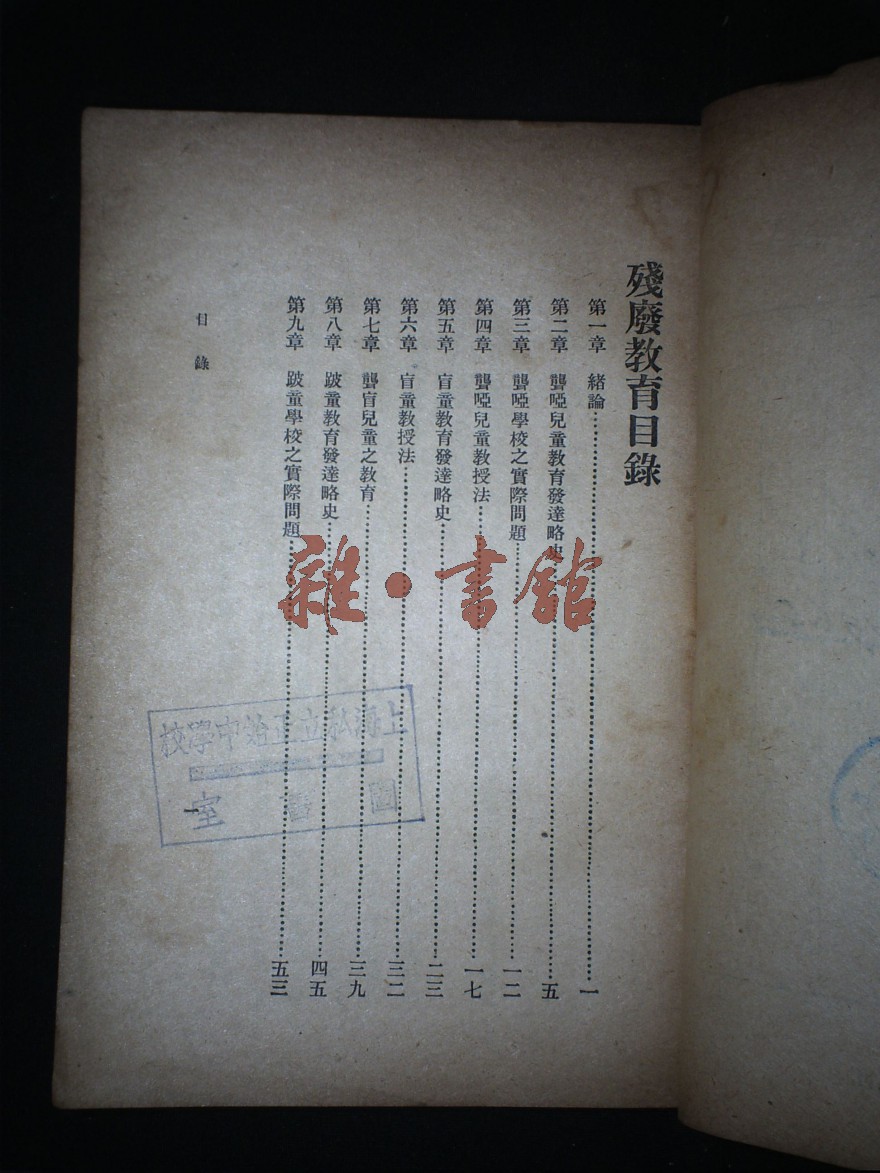 殘廢教育目錄
第一章 緒論……一
第二章 聾啞兒童教育發達略史……五
第三章 聾啞學校之實際問題……一二
第四章 聾啞兒童教授法……一七
第五章 盲童教育發達略史……二三
第六章 盲童教授法……三二
第七章 聾盲兒童之教育……三九
第八章 跛童教育發達略史……四五
第九章 跛童學校之實際問題……五三
目錄
雜·書館
上海私立正始中學校
圖書室